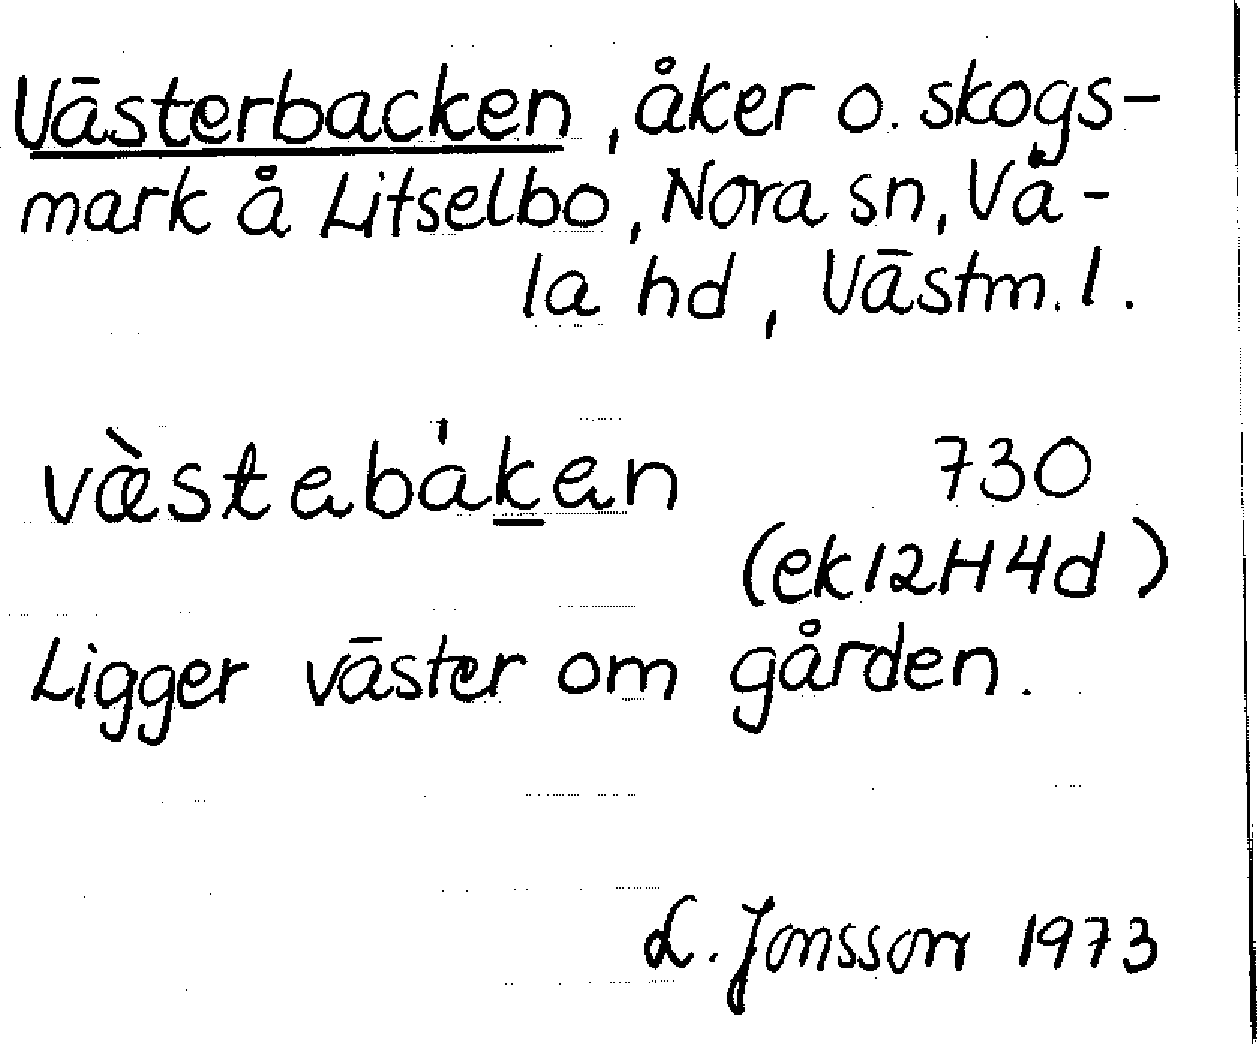 Västerbacken, åker o. skogs-
mark å Litselbo, Nora sn, Vå-
la hd, Västm. l.
væ̀stabàk̲an 730
(ek 12H4d)
Ligger väster om gården.
L. Jonsson 1973